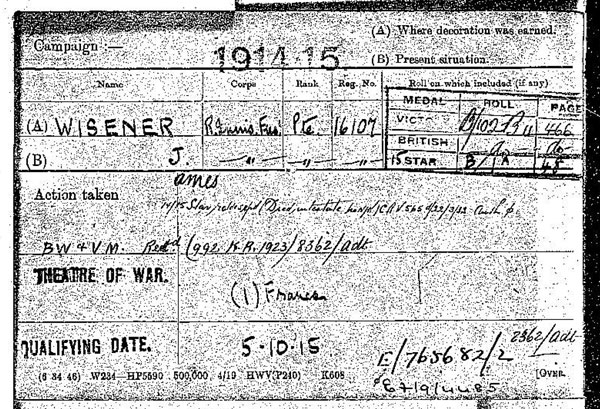 Campaign :— 1914-15 (A) Where decoration was earned.
(B) Present situation.
Name Corps Rank Reg. No. Roll on which included (if any)
MEDAL ROLL PAGE
(A) WISENER R. Innis. Fus. Pte. 16107
VICTORY B/102 B 11 466
BRITISH do do
(B) J. —"— —"— —"— 15 STAR B/1A 48
ames
Action taken
14/15 Star
BW & V.M. Retd (992. K.R. 1923) 8362/adt
THEATRE OF WAR. (1) France
QUALIFYING DATE. 5.10.15
2362/adt
E/765682/2
(6 34 46) W234—HP5590 500,000 4/19 HWV(P240) K608 [OVER.